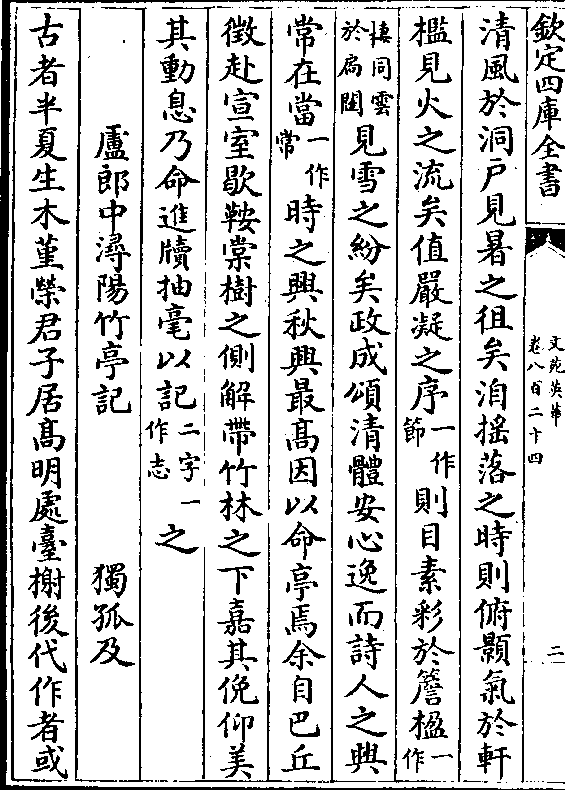 欽定四庫全書
文苑英華
卷八百二十四
二
清風於洞戶見暑之徂矣洎揺落之時則俯顥氣於軒
檻見火之流矣值嚴凝之序一作節則目素彩於簷楹一作
棲同雲於扃見雪之紛矣政成頌清體安心逸而詩人之興
常在當一作常時之興秋興最髙因以命亭焉余自巴丘
徵赴宣室歇鞍棠樹之側解帶竹林之下嘉其俛仰美
其動息乃命進牘抽毫以記二字一作志之
盧郎中潯陽竹亭記 獨孤及
古者半夏生木堇榮君子居髙明處臺榭後代作者或